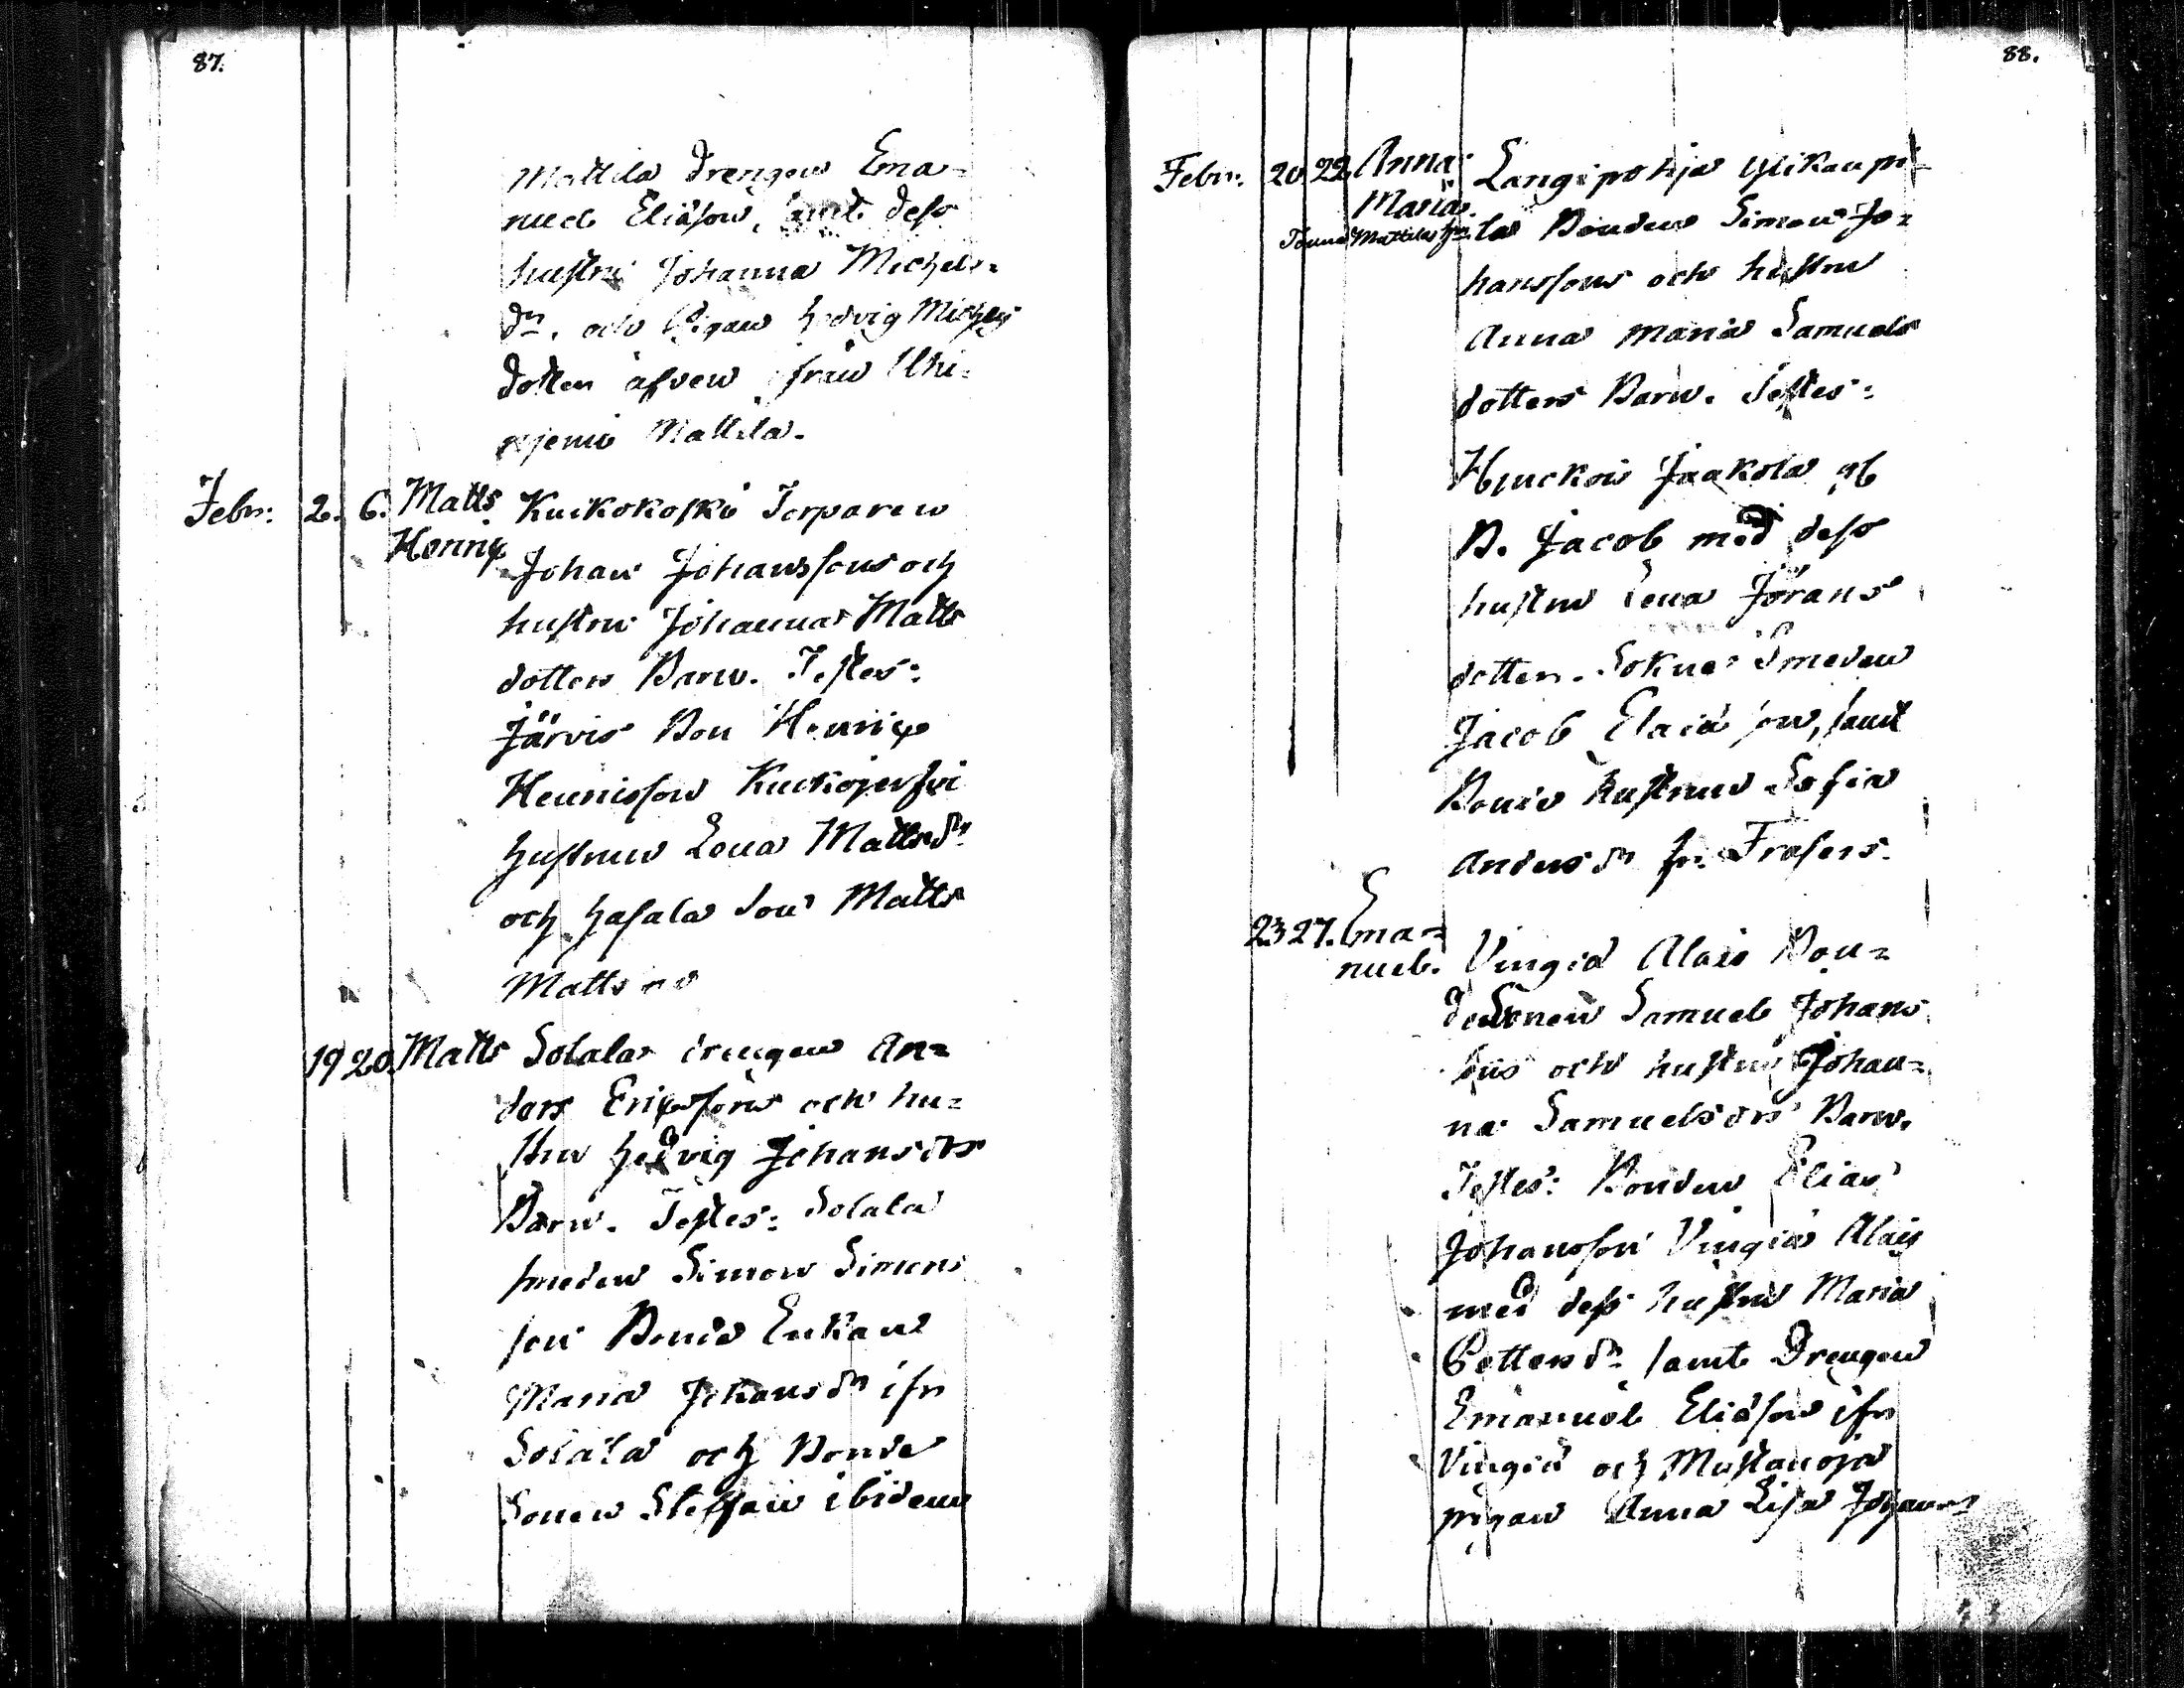 87.
Mattila Drengen Ema=
nuel Eliäson, samt dess
hustru Johanna Michels=
dr. och Pigan Hedvig Michels
dotter äfven ifrån
Mattila.
Febr: 2. 6. Matts Kuckokoski Torparen
Henric Johan Johanssons och
hustru Johanna Matts
dotters Barn. Testes:
Järvis Bon Henric
Henricsson Kuckojerfvi
hustrun Lena Mattsdr
och Hasala Son Matts
Matts
19 20. Matts Solala drengen An=
ders Ericssons och hu=
stru Hedvig Johansdrs
Barn. Testes: Solala
smeden Simon Simons
son Bonde Enkan
Maria Johansdr ifr
Solala och Bonde
Sonen Steffan ibidem
88.
Febr: 20. 22. Anna Langipohja Ylikaupi=
Maria. la Bonden Simon Jo=
Mattilas
hanssons och hustru
Anna Maria Samuels
dotters Barn. Testes:
Jaakola
B. Jacob med dess
hustru Lena Jörans
dotter. Sokne Smeden
Jacob son, samt
Bonde hustrun Sofia
Anders dr fr.
23 27. Ema= Vingiä Alais Bon=
nuel. desonen Samuel Johans
sons och hustru Johan=
na Samuelsdrs Barn.
Testes: Bonden Elias
Johansson Vingiä Alais
med dess hustru Maria
Petters dr samt Drengen
Emanuel Eliäson ifr
Vingiä och Mustanoja
pigan Anna Lisa Johans=